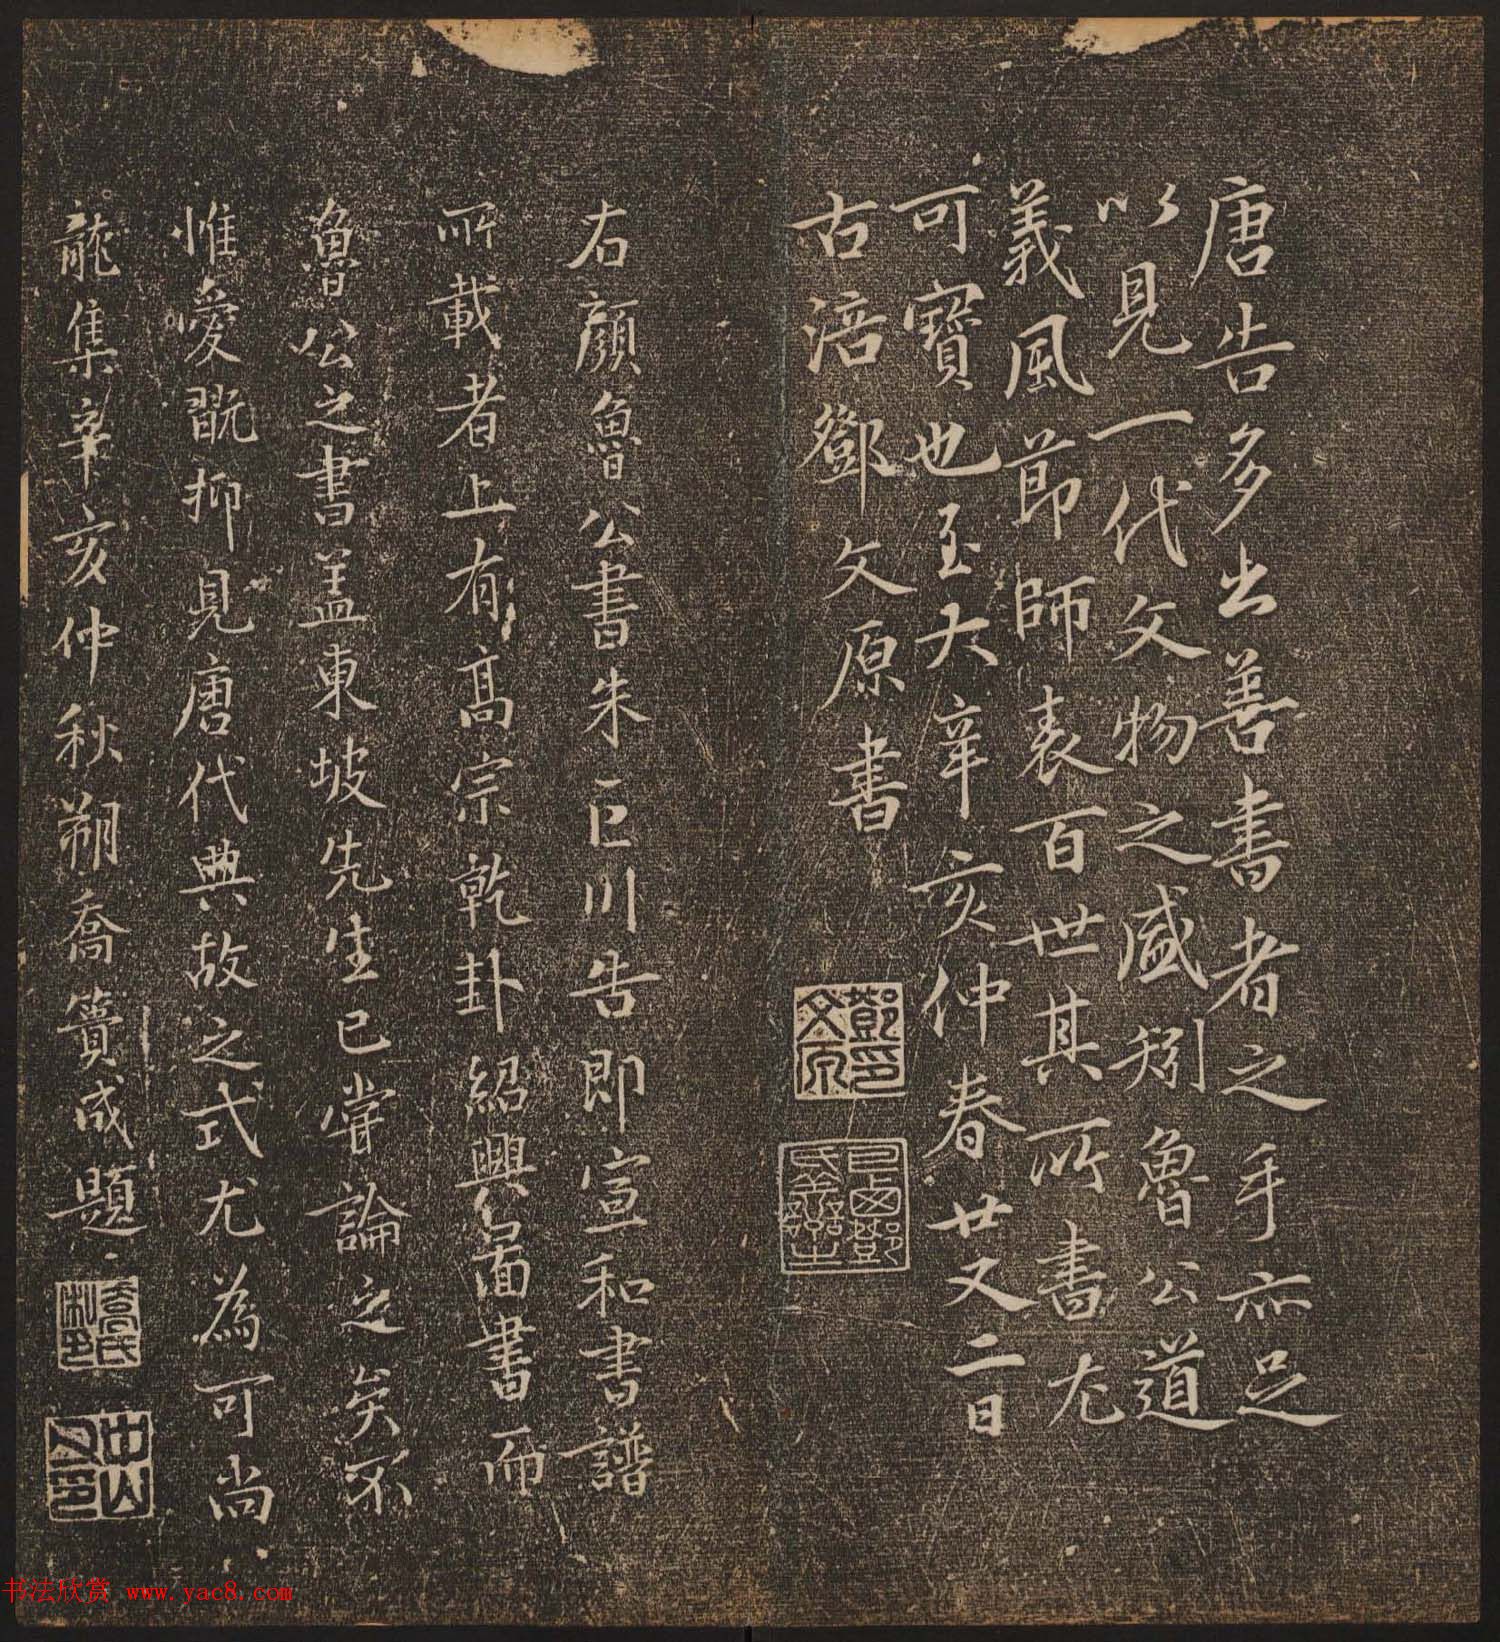 唐告多出善書者之手亦足
以見一代文物之盛矧魯公道
義風節師表百世其所書尤
可寶也至大辛亥仲春廿又二日
古涪鄧文原書
右顏魯公書朱巨川告即宣和書譜
所載者上有高宗乾卦紹興啚書而
魯公之書盖東坡先生已嘗論之矣不
惟愛翫抑見唐代典故之式尤為可尚
龍集辛亥仲秋朔喬簣成題
书法欣赏 www.yac8.com